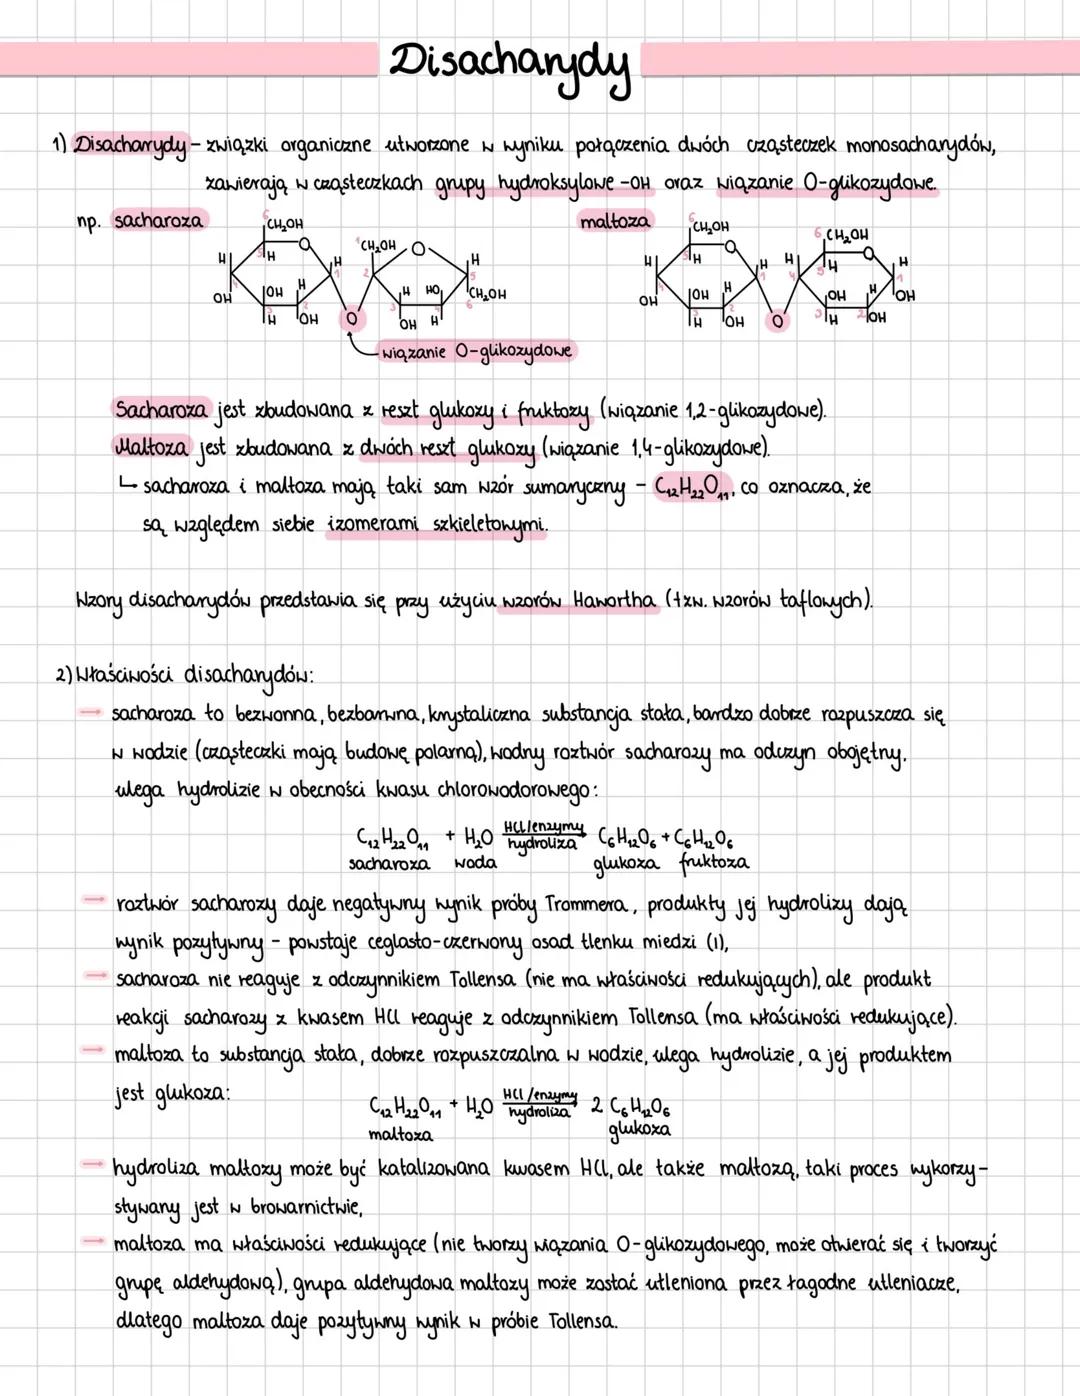 Disacharydy
1) Disacharydy - związki organiczne utworzone w wyniku połączenia dwóch cząsteczek monosacharydów,
zawierają w cząsteczkach grupy hydroksylowe -OH oraz wiązanie O-glikozydowe.
np. sacharoza maltoza
6 CH₂OH H 5 H O H 1 4 OH OH H 3 H 2 OH O 1 CH₂OH O H 2 5 H HO CH₂OH 3 4 6 OH H
6 CH₂OH H 5 H O H 1 4 OH OH H 3 H 2 OH O 6 CH₂OH H 5 H O H 4 1 OH H OH 3 H 2 OH
wiązanie O-glikozydowe
Sacharoza jest zbudowana z reszt glukozy i fruktozy (wiązanie 1,2-glikozydowe).
Maltoza jest zbudowana z dwóch reszt glukozy (wiązanie 1,4-glikozydowe).
↳ sacharoza i maltoza mają taki sam wzór sumaryczny - C₁₂H₂₂O₁₁, co oznacza, że
są względem siebie izomerami szkieletowymi.
Wzory disacharydów przedstawia się przy użyciu wzorów Hawortha (tzw. wzorów taflowych).
2) Właściwości disacharydów:
→ sacharoza to bezwonna, bezbarwna, krystaliczna substancja stała, bardzo dobrze rozpuszcza się
w wodzie (cząsteczki mają budowę polarną), wodny roztwór sacharozy ma odczyn obojętny.
ulega hydrolizie w obecności kwasu chlorowodorowego:
C₁₂H₂₂O₁₁ + H₂O HCl/enzymy hydroliza C₆H₁₂O₆ + C₆H₁₂O₆
sacharoza woda glukoza fruktoza
→ roztwór sacharozy daje negatywny wynik próby Trommera, produkty jej hydrolizy dają
wynik pozytywny - powstaje ceglasto-czerwony osad tlenku miedzi (I),
→ sacharoza nie reaguje z odczynnikiem Tollensa (nie ma właściwości redukujących), ale produkt
reakcji sacharozy z kwasem HCl reaguje z odczynnikiem Tollensa (ma właściwości redukujące).
→ maltoza to substancja stała, dobrze rozpuszczalna w wodzie, ulega hydrolizie, a jej produktem
jest glukoza:
C₁₂H₂₂O₁₁ + H₂O HCl/enzymy hydroliza 2 C₆H₁₂O₆
maltoza glukoza
→ hydroliza maltozy może być katalizowana kwasem HCl, ale także maltozą, taki proces wykorzy-
stywany jest w browarnictwie,
→ maltoza ma właściwości redukujące (nie tworzy wiązania O-glikozydowego, może otwierać się i tworzyć
grupę aldehydową), grupa aldehydowa maltozy może zostać utleniona przez łagodne utleniacze,
dlatego maltoza daje pozytywny wynik w próbie Tollensa.